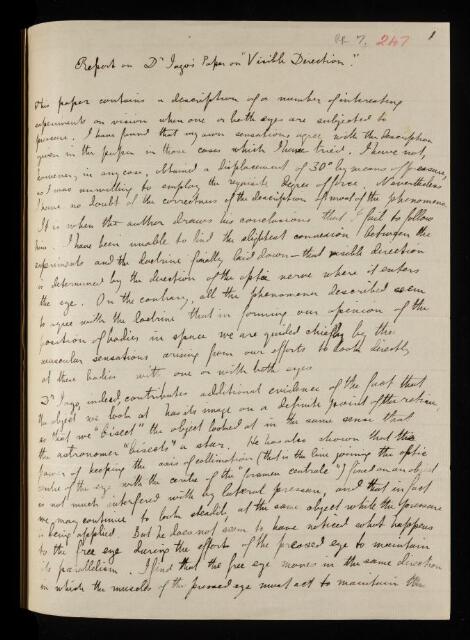 RR 7. 247 1
Report on Dr Jago's Paper on "Visible Direction."
This paper contains a description of a number of interesting
experiments on vision when one or both eyes are subjected to
pressure. I have found that my own sensations agree with the description
given in the paper in those cases which I have tried. I have not,
however, in any case, obtained a displacement of 30° by means of pressure,
as I was unwilling to employ the requisite degree of force. Nevertheless
I have no doubt of the correctness of the description of most of the phenomena
It is when the author draws his conclusions that I fail to follow
him. I have been unable to find the slightest connexion between the
experiments and the doctrine finally laid down – that visible direction
is determined by the direction of the optic nerve where it enters
the eye. On the contrary, all the phenomena described seem
to agree with the doctrine that in forming our opinion of the
position of bodies in space we are guided chiefly by the
muscular sensations arising from our efforts to look directly
at these bodies with one or with both eyes
Dr Jago, indeed, contributes additional evidence of the fact that
the object we look at has its image on a definite point of the retina
so that we "bisect" the object looked at in the same sense that
the astronomer "bisects" a star. He has also shown that the
power of keeping the axis of collimation (that is the line joining the optic
centre of the eye with the centre of the "foramen centrale") fixed on an object
is not much interfered with by lateral pressure, and that in fact
we may continue to look steadily at the same object while the pressure
is being applied. But he does not seem to have noticed what happens
to the free eye during the efforts of the pressed eye to maintain
its parallelism. I find that the free eye moves in the same direction
in which the muscles of the pressed eye must act to maintain the